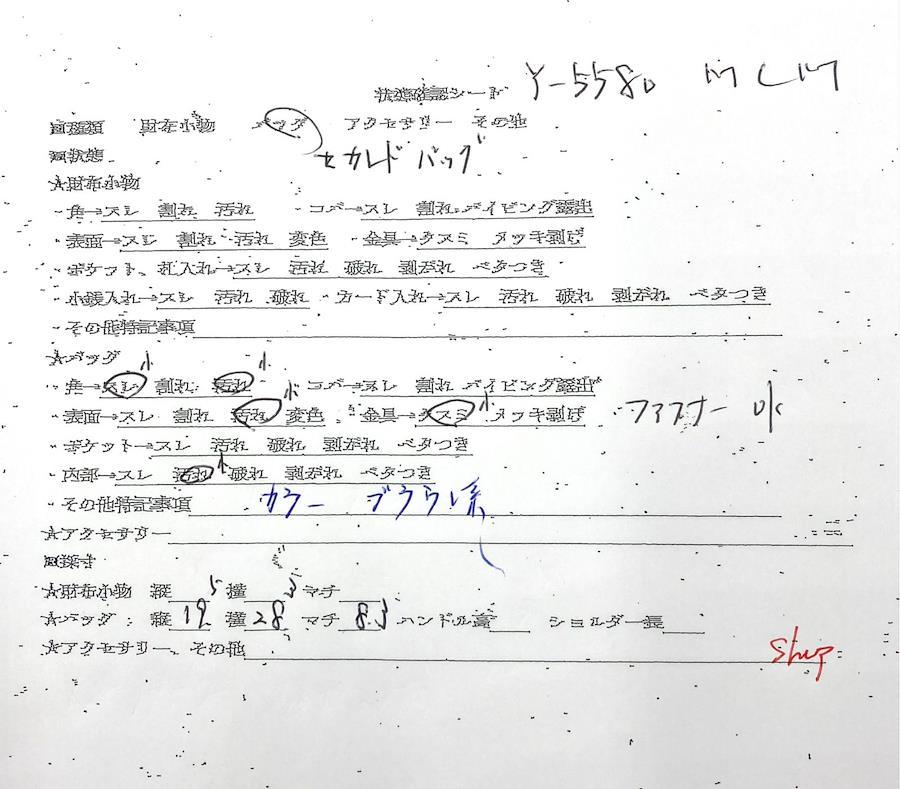 状態確認シート Y-5580 MCM
□種類 財布小物 バッグ アクセサリー その他
セカンドバッグ
□状態
☆財布小物
・角→スレ 割れ 汚れ ・コバ→スレ 割れ パイピング露出
・表面→スレ 割れ 汚れ 変色 ・金具→クスミ メッキ剥げ
・ポケット、札入れ→スレ 汚れ 破れ 剥がれ ベタつき
・小銭入れ→スレ 汚れ 破れ ・カード入れ→スレ 汚れ 破れ 剥がれ ベタつき
・その他特記事項
☆バッグ 小 小
・角→スレ 割れ 汚れ 小 コバ→スレ 割れ パイピング露出
・表面→スレ 割れ 汚れ 変色 ・金具→クスミ 小 メッキ剥げ ファスナー 小
・ポケット→スレ 汚れ 破れ 剥がれ ベタつき
・内部→スレ 汚れ 小 破れ 剥がれ ベタつき
・その他特記事項 カラー ブラウン系
☆アクセサリー
□採寸
☆財布小物 縦 横 マチ
☆バッグ: 縦 19.5 横 28.5 マチ 8.3 ハンドル高 ショルダー長
☆アクセサリー、その他